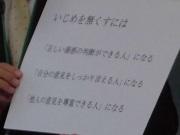 いじめを無くすには
「正しい善悪の判断ができる人」になる
「自分の意見をしっかり言える人」になる
「他人の意見を尊重できる人」になる